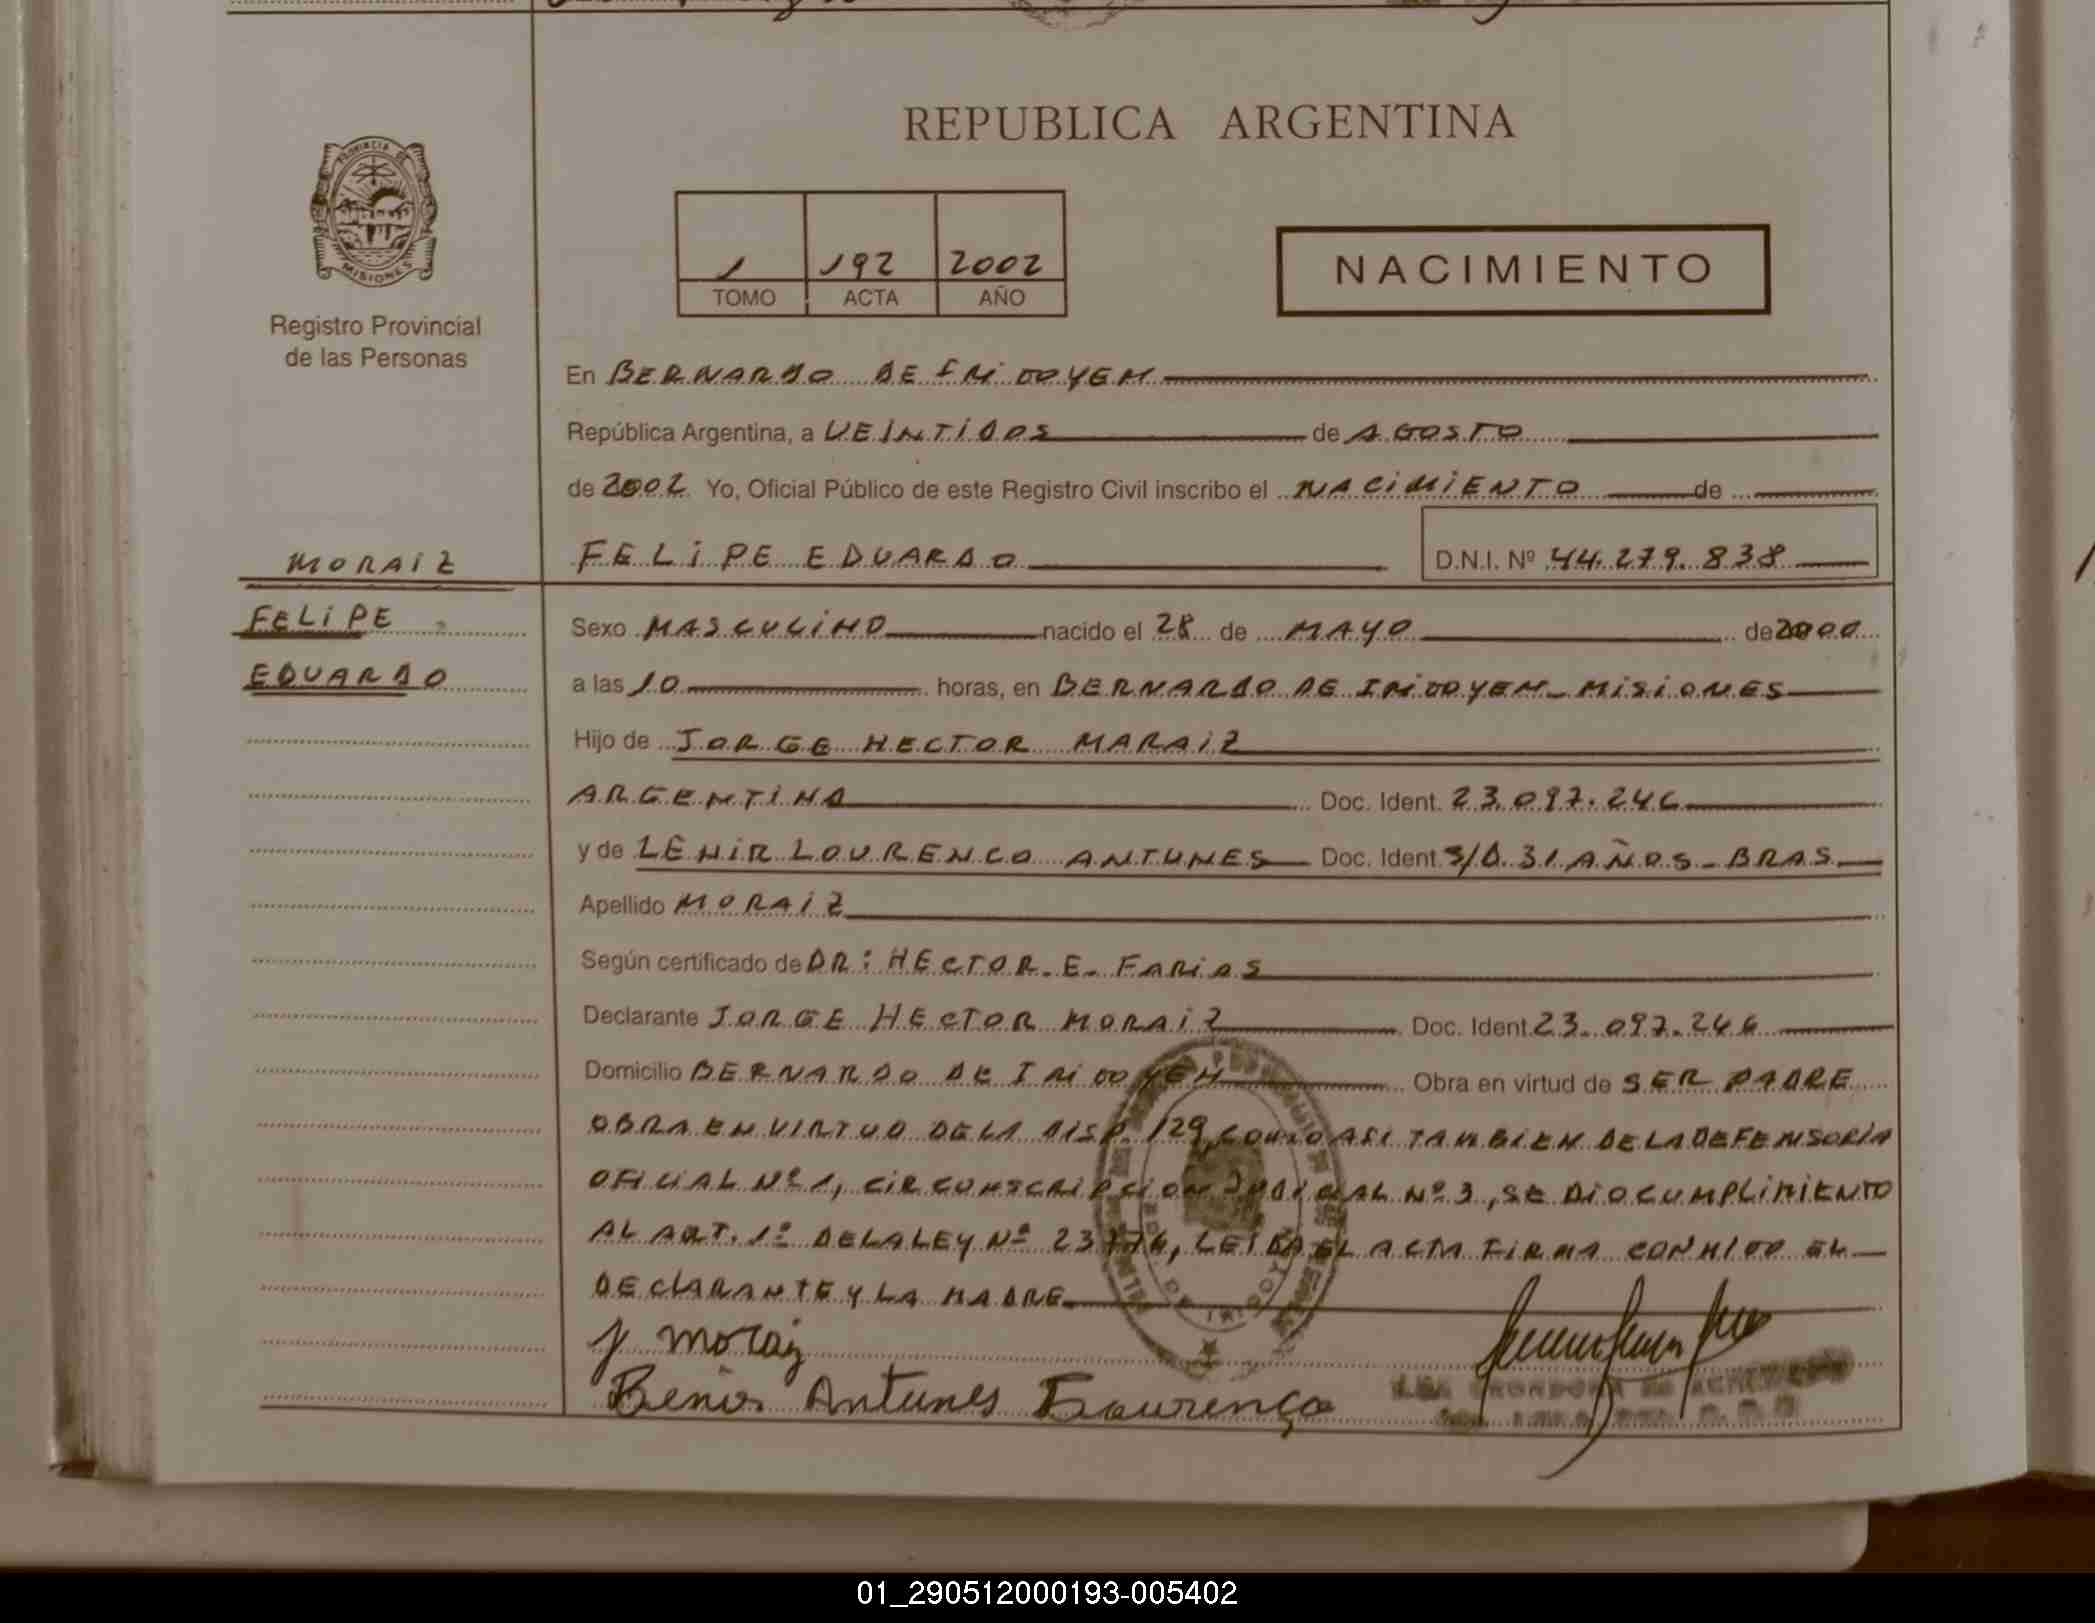 REPUBLICA ARGENTINA
PROVINCIA DE
MISIONES
Registro Provincial
de las Personas
1 192 2002
TOMO ACTA AÑO
NACIMIENTO
En BERNARDO DE IRIGOYEN
República Argentina, a VEINTIDOS de AGOSTO
de 2002 Yo, Oficial Público de este Registro Civil inscribo el NACIMIENTO de
MORAIZ
FELIPE EDUARDO D.N.I. Nº 44.279.838
FELIPE
EDUARDO
Sexo MASCULINO nacido el 28 de MAYO de 2000
a las 10 horas, en BERNARDO DE IRIGOYEN - MISIONES
Hijo de JORGE HECTOR MARAIZ
ARGENTINO Doc. Ident. 23.097.246
y de LENIR LOURENCO ANTUNES Doc. Ident. S/D. 31 AÑOS - BRAS
Apellido MORAIZ
Según certificado de DR: HECTOR. E. FARIAS
Declarante JORGE HECTOR MORAIZ Doc. Ident. 23.097.246
Domicilio BERNARDO DE IRIGOYEN Obra en virtud de SER PADRE
OBRA EN VIRTUD DE LA DISP. 129, COMO ASI TAMBIEN DE LA DEFENSORIA
OFICIAL Nº 1, CIRCONSCRIPCION JUDICIAL Nº 3, SE DIO CUMPLIMIENTO
AL ART. 1º DE LA LEY Nº 23776, LEIDA EL ACTA FIRMA CONMIGO EL
DECLARANTE Y LA MADRE
J Moraiz
Antunes Lourenço
01_290512000193-005402